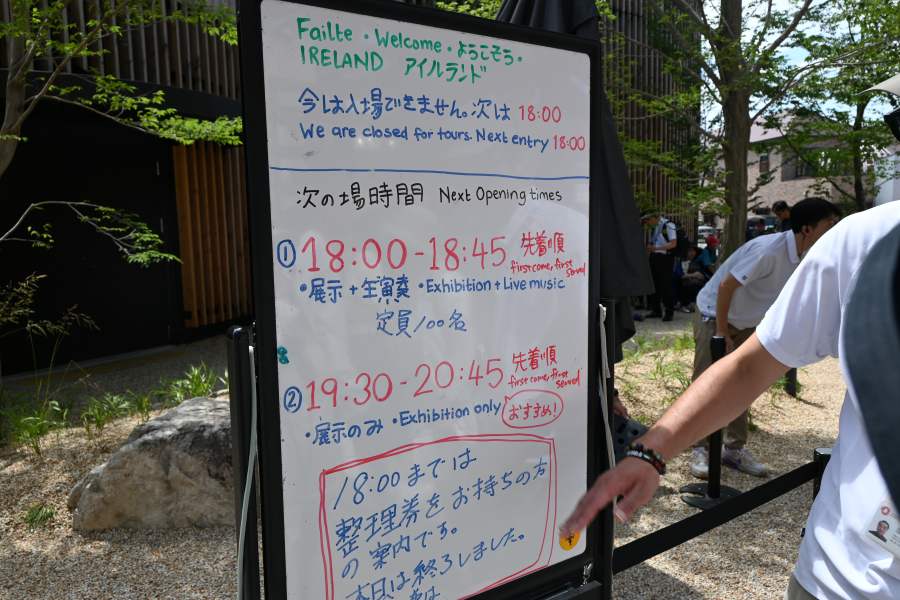 Failte · Welcome · ようこそう ·
IRELAND アイルランド
今は入場できません。次は 18:00
We are closed for tours. Next entry 18:00
次の場時間 Next Opening times
① 18:00-18:45 先着順
first come, first served
・展示+生演奏 ・Exhibition+Live music
定員100名
② 19:30-20:45 先着順
first come, first served
・展示のみ ・Exhibition only おすすめ!
18:00までは
整理券をお持ちの方
の案内です。
本日は終了しました。